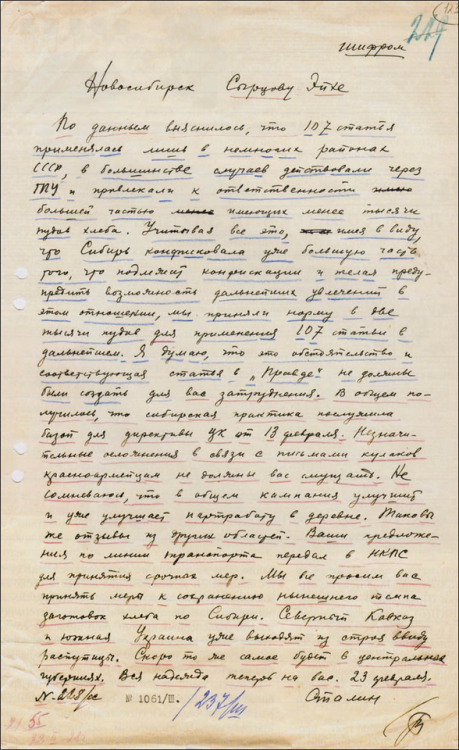 224
шифром
Новосибирск Сырцову Эйхе
По данным выяснилось, что 107 статья
применялась лишь в немногих районах
СССР, в большинстве случаев действовали через
ГПУ и привлекали к ответственности
большей частью имеющих менее тысячи
пудов хлеба. Учитывая все это, имея в виду,
что Сибирь конфисковала уже большую часть
того, что подлежит конфискации и желая преду-
предить возможность дальнейших увлечений в
этом отношении, мы приняли норму в две
тысячи пудов для применения 107 статьи в
дальнейшем. Я думаю, что это обстоятельство и
соответствующая статья в „Правде" не должны
были создать для вас затруднения. В общем по-
лучилось, что сибирская практика послужила
базой для директивы ЦК от 13 февраля. Незначи-
тельные осложнения в связи с письмами кулаков
красноармейцам не должны вас смущать. Не
сомневаюсь, что в общем кампания улучшит
и уже улучшает партработу в деревне. Таковы
же отзывы из других областей. Ваши предложе-
ния по линии транспорта передал в НКПС
для принятия срочных мер. Мы все просим вас
принять меры к сохранению нынешнего темпа
заготовок хлеба по Сибири. Северный Кавказ
и южная Украина уже выходят из строя ввиду
распутицы. Скоро то же самое будет в центральных
губерниях. Вся надежда теперь на вас. 23 февраля.
№ 228/сс № 1061/Ш. /237/ш Сталин